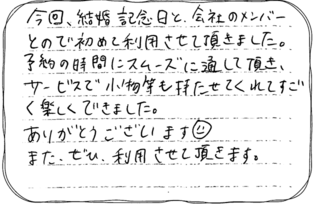 今回、結婚記念日と、会社のメンバー
とので初めて利用させて頂きました。
予約の時間にスムーズに通して頂き、
サービスで小物等も持たせてくれてすご
く楽しくできました。
ありがとうございます☺
また、ぜひ、利用させて頂きます。